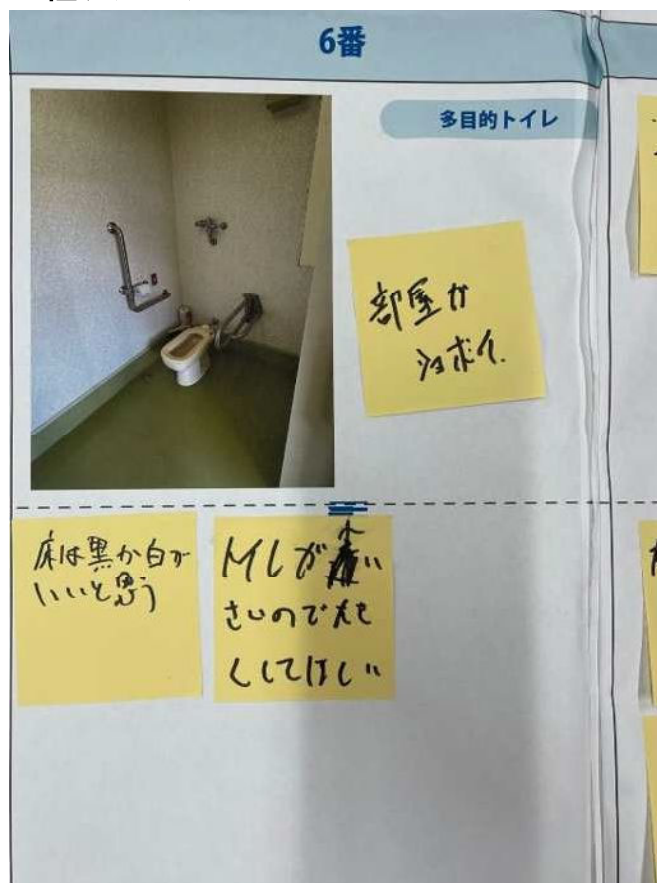 6番
多目的トイレ
部屋が
ショボイ。
床は黒か白が
いいと思う
トイレが小
さいので大き
くしてほしい